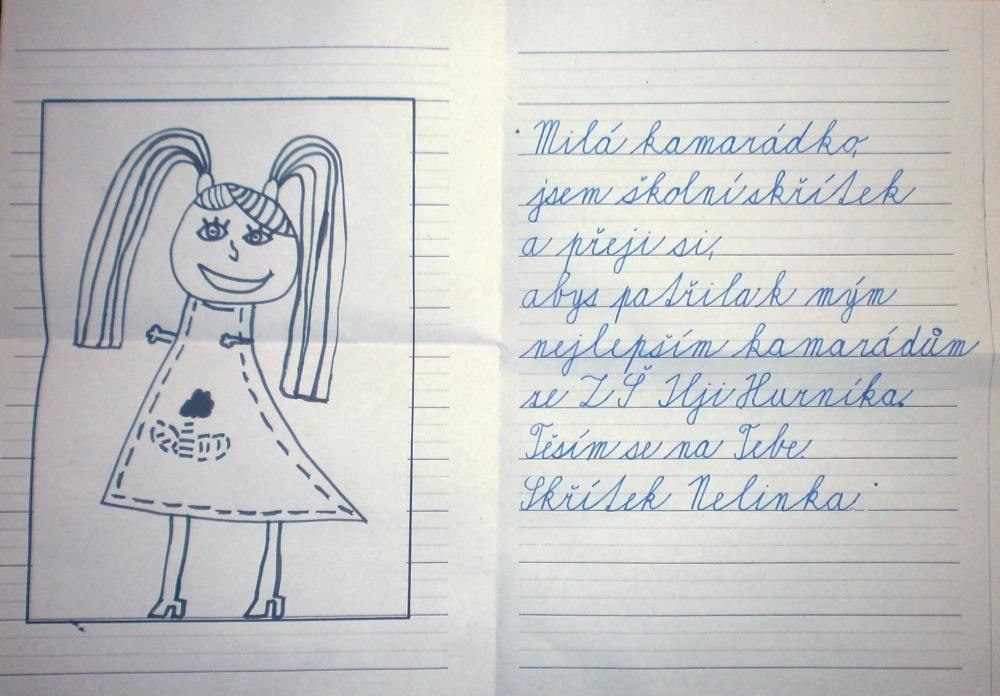 Milá kamarádko,
jsem školní skřítek
a přeji si,
abys patřila k mým
nejlepším kamarádům
ze ZŠ Ilji Hurníka.
Těším se na Tebe.
Skřítek Nelinka